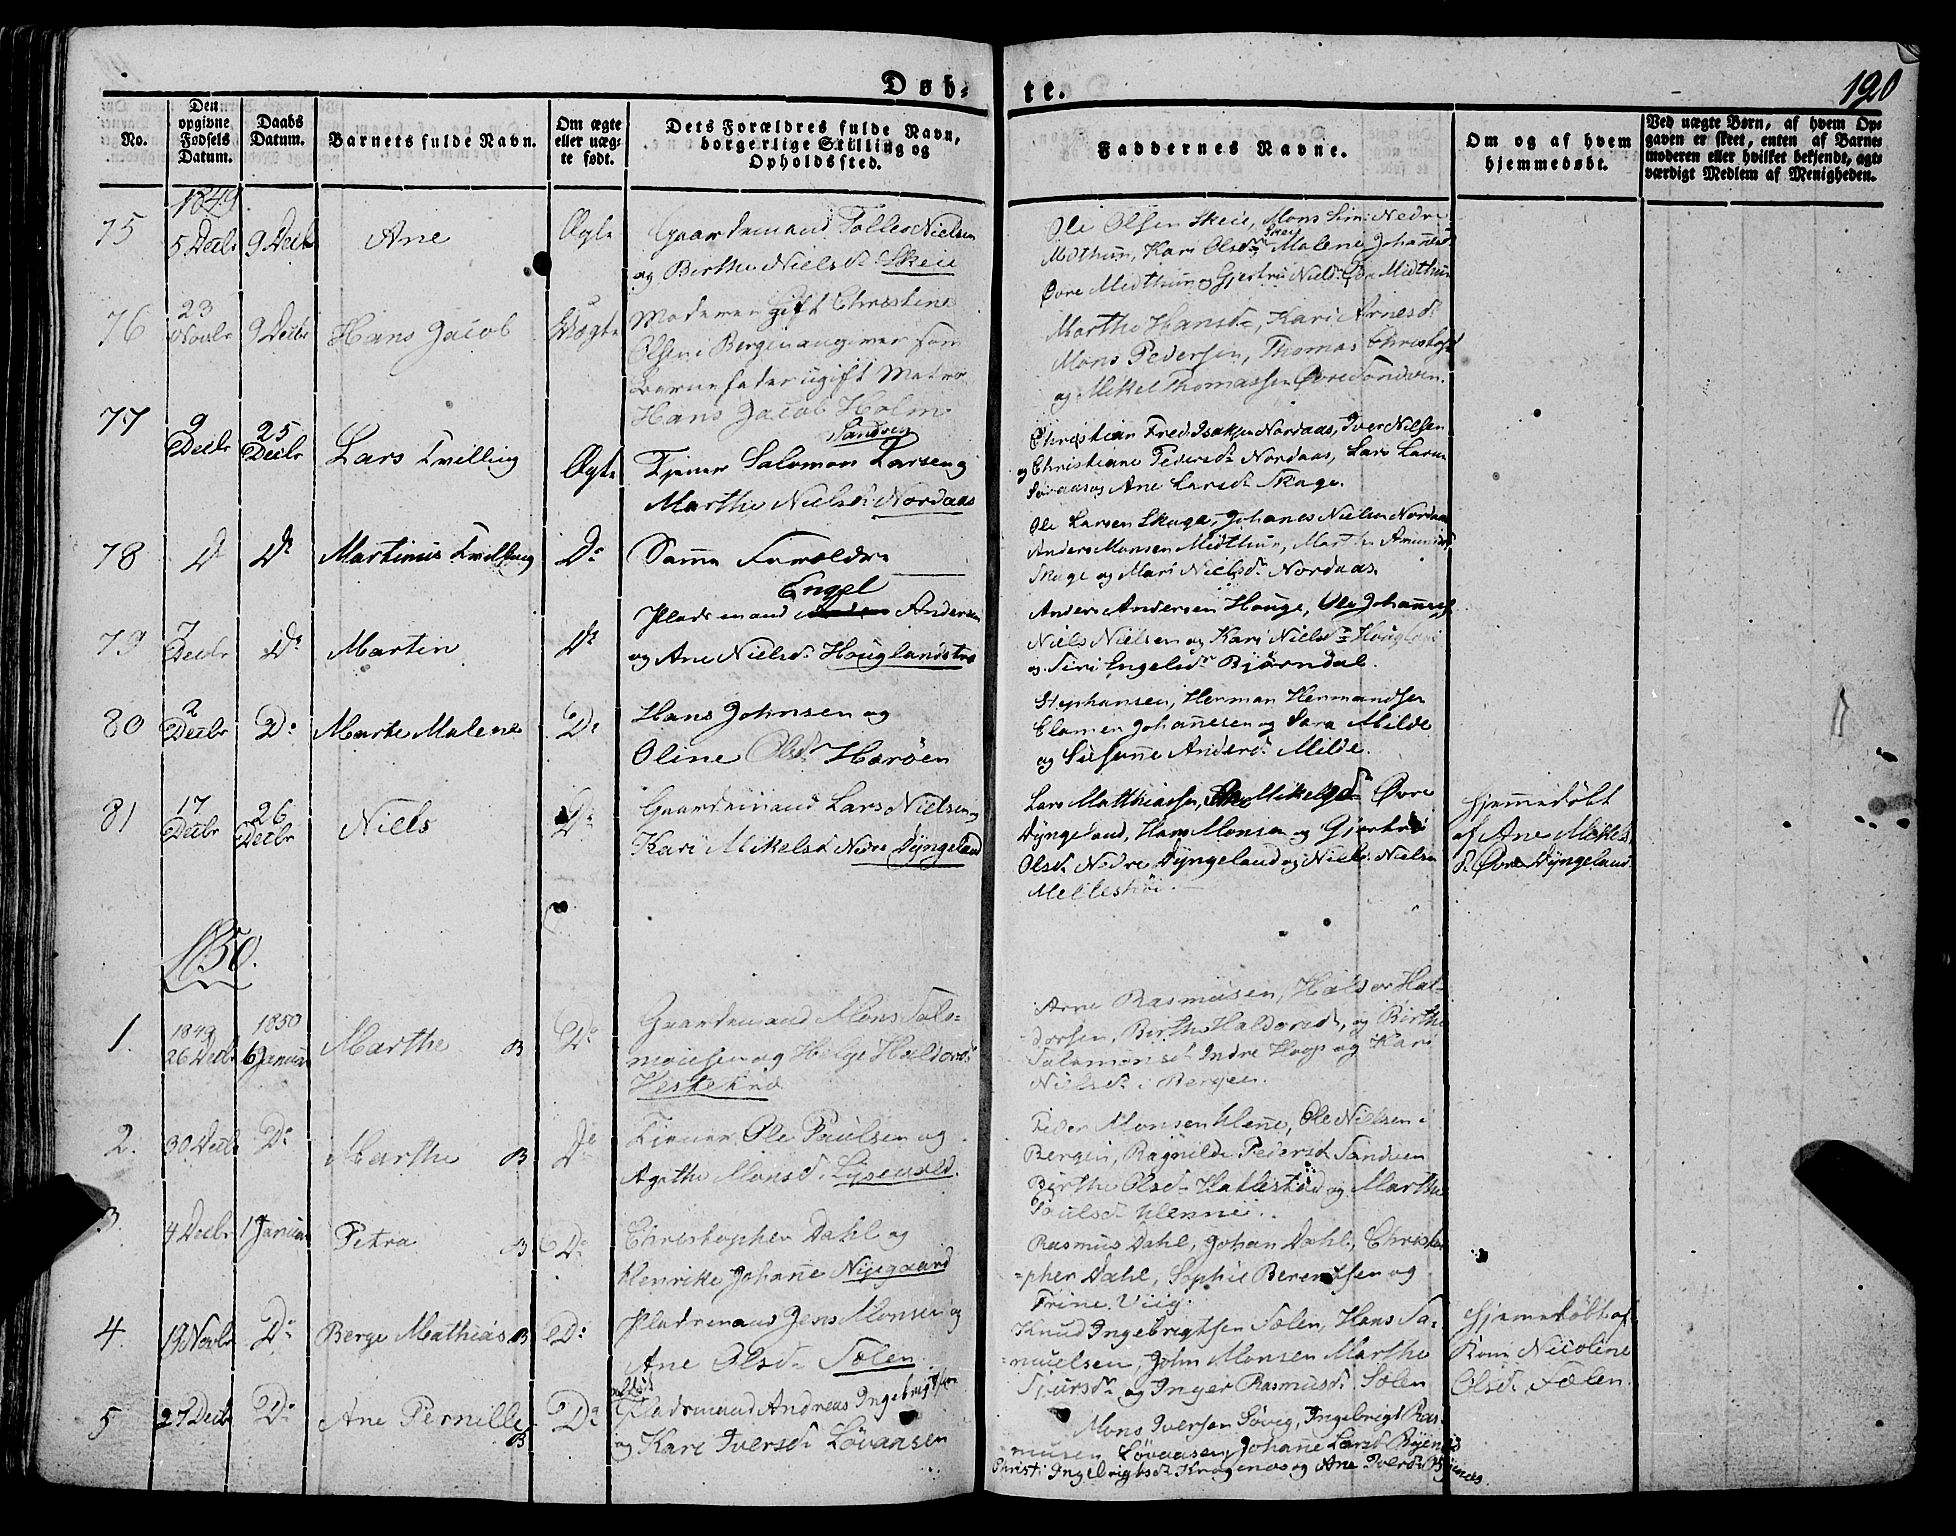 Døb-
te.
190
No.
Den
opgivne
Fødsels
Datum.
Daabs
Datum.
Barnets fulde Navn.
Om ægte
eller uæg-
te født.
Dets Forældres fulde Navn,
borgerlige Stilling og
Opholdssted.
Faddernes Navne.
Om og af hvem
hjemmedøbt.
Ved uægte Børn, af hvem Op-
gaven er skeet, enten af Barnets
moderen eller hvilket bekjendt, agt-
værdigt Medlem af Menigheden.
1849
75
5 Decbr
9 Decbr
Ane
Ægte
Gaardemand Tollev Nielsen
og Birthe Nielsd. Skeie
Ole Olsen Skeie, Mons Sim: Nedre
Midthun, Kari Olsdr Skeie Malene Johannesd
Øvre Midthun og Gjertru Nielsd. Øvre Midthun
76
23
Novbr
9 Decbr
Hans Jacob
Uægte
Moderen Gift Christine
Olsen i Bergen angiver som
Barnefader ugift Matros
Hans Jacob Holm
Sandven
Marthe Hansdr, Kari Arnesd.
Mons Pedersen, Thomas Christophs
og Mikel Thomassen Øvre Sandven.
77
9
Decbr
25
Decbr
Lars Tvilling
Ægte
Tjener Salomon Larsen og
Marthe Nielsd. Nordaas
Christian Fred. Isaksen Nordaas, Iver Nilsen
og Christiane Pedersdr Nordaas, Lars Larsen
Søvaas og Ane Larsdr Skage.
78
D
Do
Martinus Tvilling
Do
Samme Forældre
Ole Larsen Skage, Johanes Nielsen Nordaas
Anders Monsen Midthun, Marthe Amundsd
Skage og Mari Nielsdr Nordaas.
79
7
Decbr
Do
Martin
Do
Engel
Pladsmand Andersen
og Ane Nielsd. Houglandstræ
Anders Andersen Houge, Ole Johannesen
Niels Nielsen og Kari Nielsdr Hougland
og Siri Engelsdr Bjørndal.
80
2
Decbr
Do
Marte Malene
Do
Hans Johnsen og
Oline Olsdr Harøen
Stephansen, Herman Hermandsen
Clamen Johannesen og Sara Milde
og Susanne Andersd. Milde.
81
17
Decbr
26
Decbr
Niels
Do
Gaardemand Lars Nielsen og
Kari Mikelsd. Nedre Dyngeland
Lars Matthiassen, Ane Mikelsd. Øvre
Dyngeland, Hans Monsen og Gjertru
Olsd. Nedre Dyngeland og Niels Nielsen
Mellestrøi.
Hjemmedøbt
af Ane Mikels
d. Øvre Dyngeland
1850.
1.
1849
26 Decbr
1850
6 Januar
Marthe B
Do
Gaardemand Mons Salo-
monsen og Helge Haldorsd.
Vestekno
Arne Rasmusen, Halsor Hal-
dorsen, Birthe Haldorsd., og Birthe
Salamonsd. Indre Hoop og Kari
Nielsdr i Bergen.
2.
30 Decbr
Do
Marthe B
Do
Tjener Ole Paulsen og
Agathe Monsd. Lysevold.
Peder Monsen Unne, Ole Nielsen i
Bergen, Ragnilde Pedersd. Sandven
Birthe Olsdr Hatlestad og Marthe
Paulsd. Unne.
3.
4 Decbr
1 Januar
Petra B
Do
Christopher Dahl og
Henrike Johanne Nygaard
Rasmus Dahl, Johan Dahl, Christo-
-pher Dahl, Sophie Berentsen og
Trine Viig.
4
19 Novbr
Do
Berge Mathias B
Do
Pladsmand Jens Monsen og
Ane Olsdr Sælen
Knud Ingebrigtsen Sælen, Hans Sa-
-muelsen, John Monsen Marthe
Sjursdr og Inger Rasmusd. Sælen
Hjemmedøbt af
Nicoline
Olsd. Sælen.
5
27 Decbr
Do
Ane Pernille
B
Do
Pladsmand Andreas Ingebrigtsen
og Kari Iversd. Søvaasen
Mons Iversen Søvig, Ingebrigt Ras-
musen Søvaasen, Johanne Larsd. Byenes
Christi Ingebrigtsd. Kragenæs og Ane Iversd. Byenes.